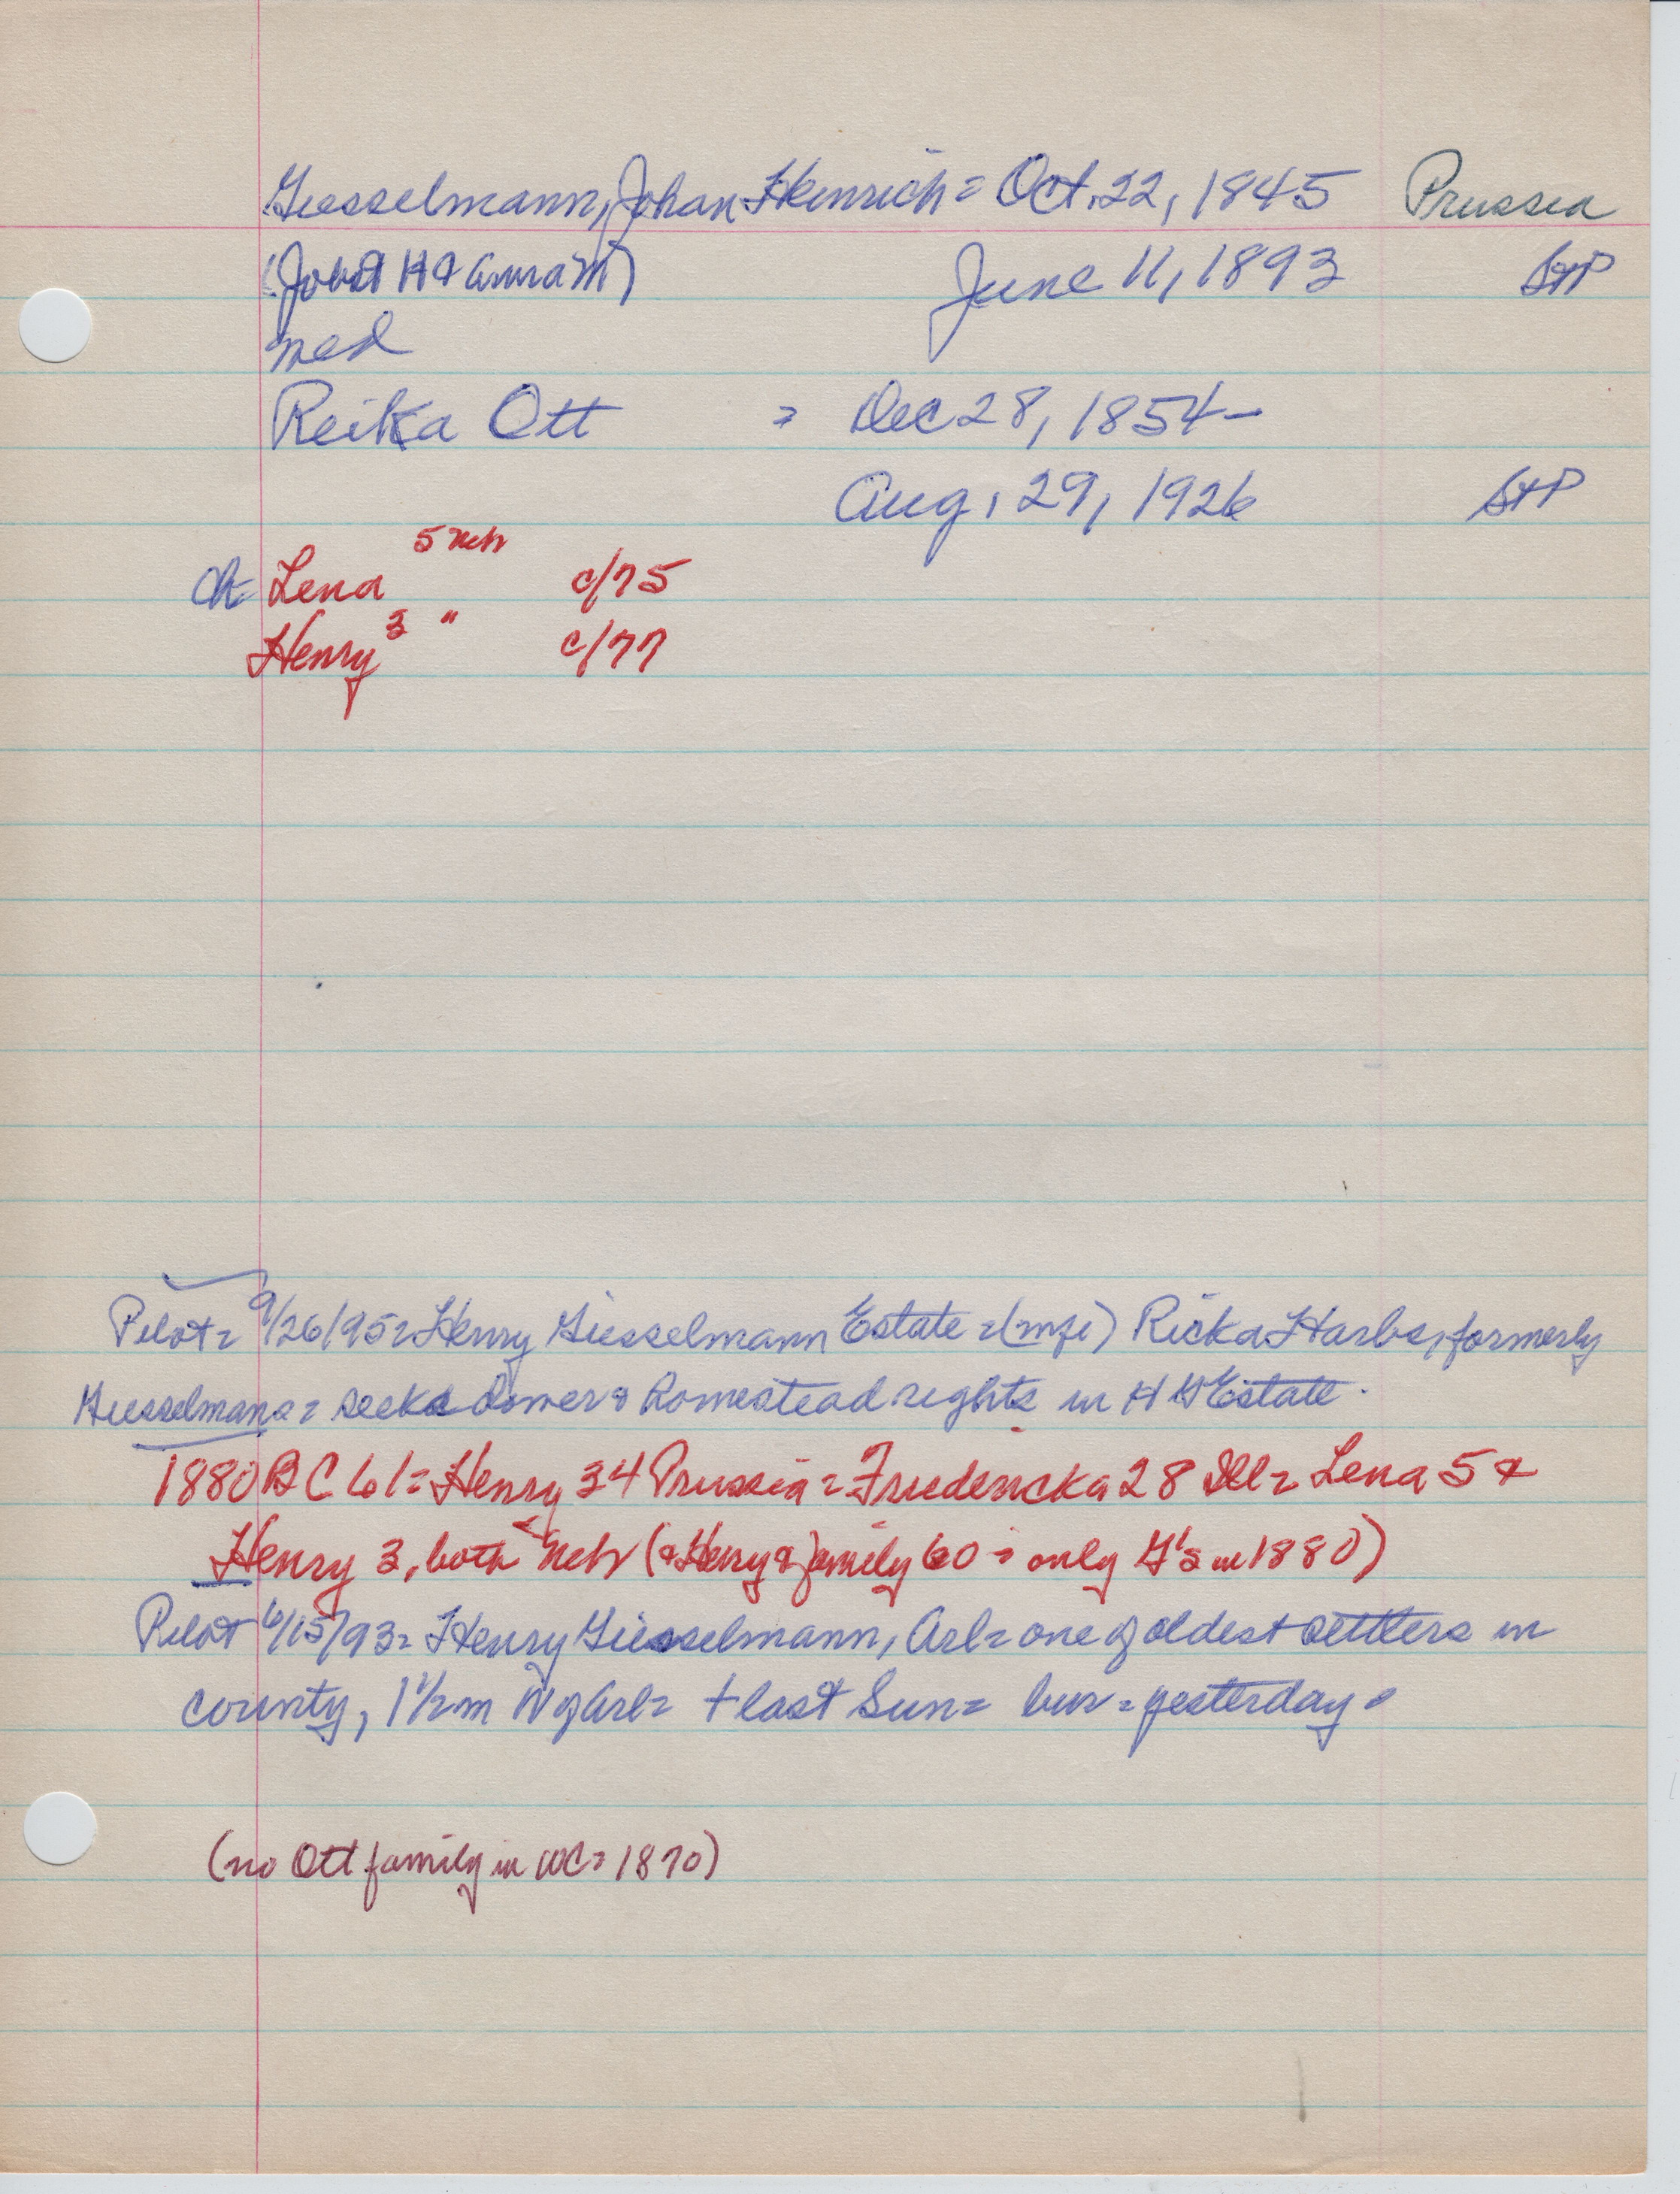 Giesselmann, Johan Heinrich = Oct. 22, 1845 Prussia
(Jobst H & Anna M) June 11, 1893 StP
med
Reika Ott = Dec 28, 1854 –
Aug. 29, 1926 StP
ch Lena 5 Neb c/75
Henry 3 " c/77
Pilot = 9/26/95 = Henry Giesselmann Estate = (mfi) Ricka Harbs, formerly
Giesselmann = seeks dower & homestead rights in H G Estate.
1880 BC 61 = Henry 34 Prussia = Friedericka 28 Ill = Lena 5 &
Henry 3, both Neb (& Henry & family 60 = only G's in 1880)
Pilot 6/15/93 = Henry Giesselmann, Arl = one of oldest settlers in
county, 1 1/2 m N of Arl = + last Sun = bur = yesterday =
(no Ott family in WC = 1870)